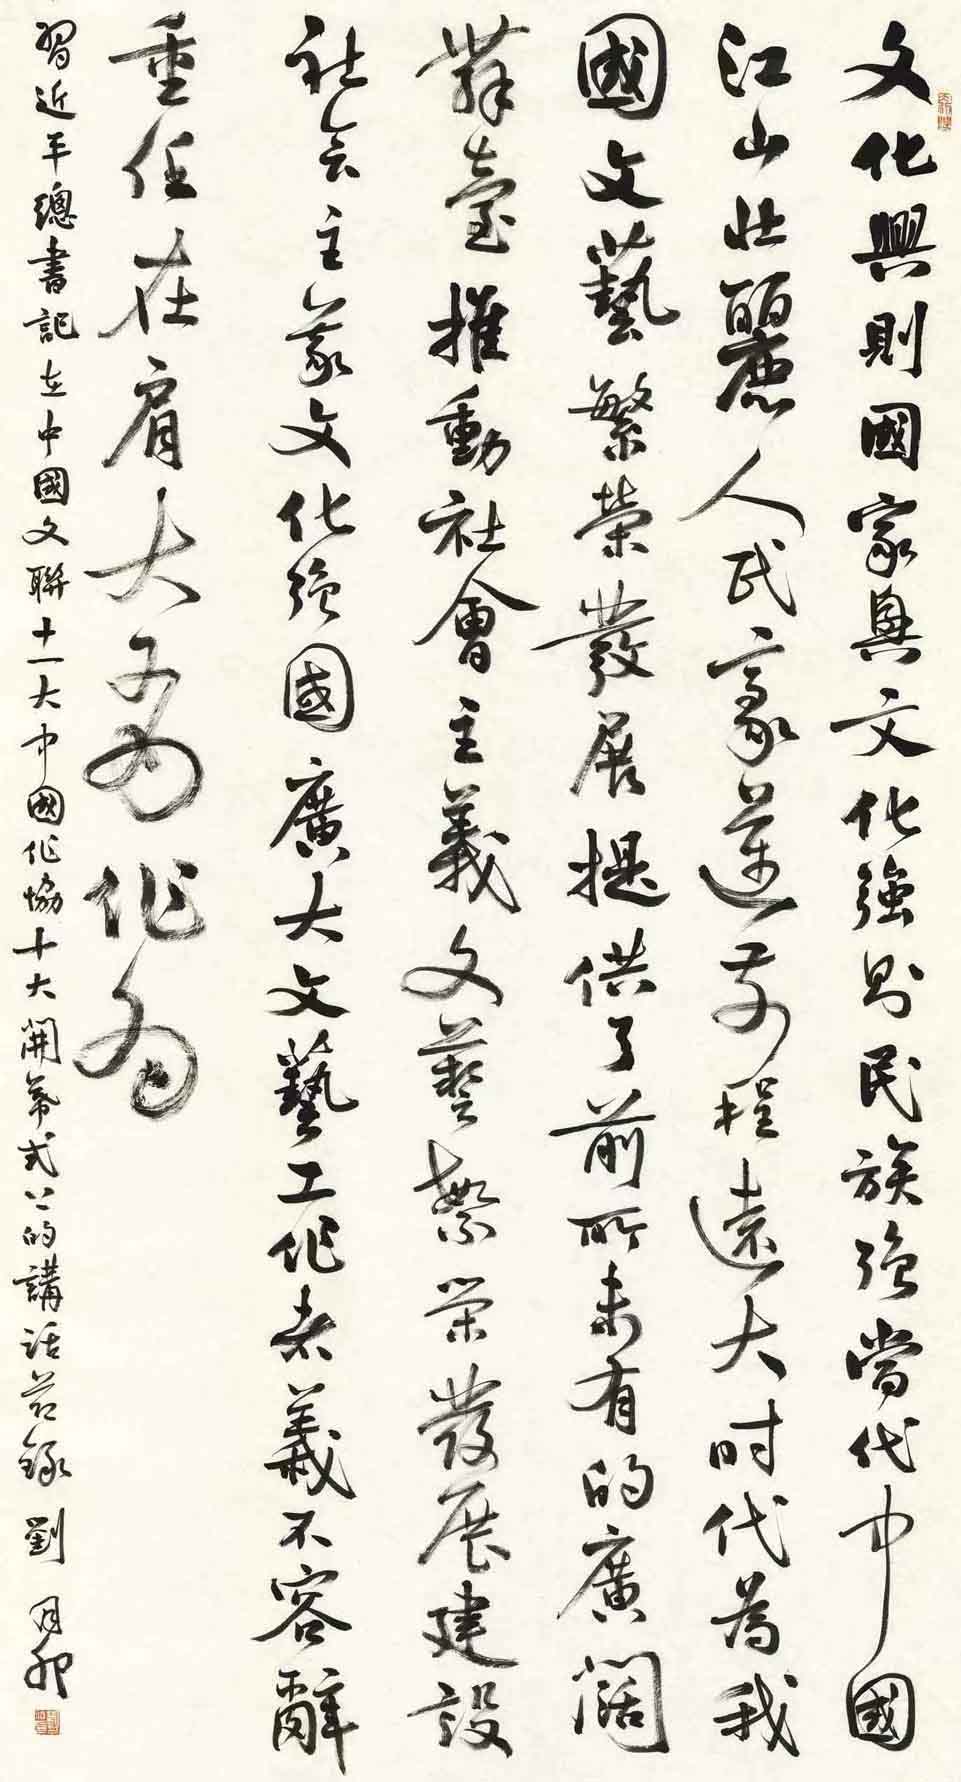 文化興則國家興文化強則民族強當代中國
江山壯麗人民豪邁前程遠大时代為我
國文藝繁榮發展提供了前所未有的廣闊
舞臺推動社會主義文藝繁荣發展建設
社会主义文化强國廣大文藝工作者義不容辭
重任在肩大有作為
習近平總書記在中國文聯十一大中國作協十大開幕式上的講話节録 劉月卯